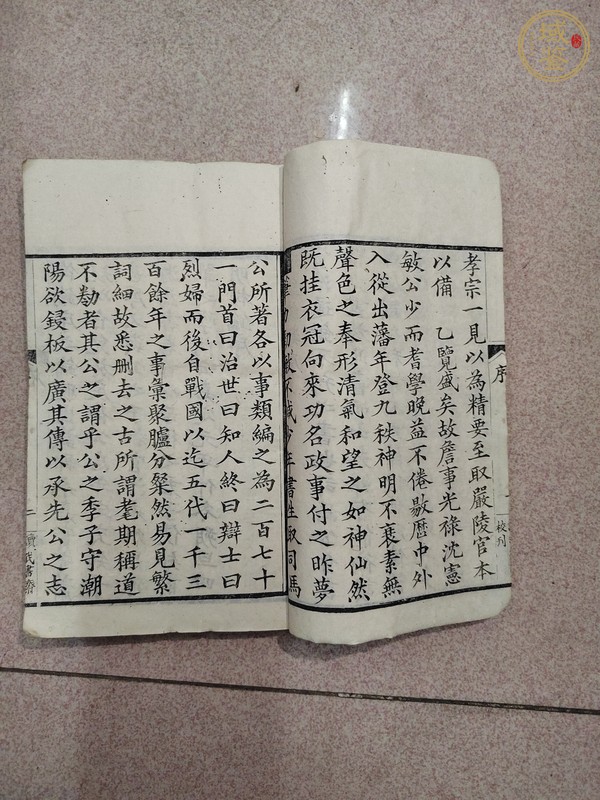 孝宗一見以為精要至取嚴陵官本
以備　乙覽盛矣故詹事光祿沈憲
敏公少而耆學晚益不倦敭歷中外
入從出藩年登九秩神明不衰素無
聲色之奉形清氣和望之如神仙然
既挂衣冠向來功名政事付之昨夢
少年書生取司馬
公所著各以事類編之為二百七十
一門首曰治世曰知人終曰辯士曰
烈婦而後自戰國以迄五代一千三
百餘年之事彙聚臚分粲然易見繁
詞細故悉刪去之古所謂耄期稱道
不勌者其公之謂乎公之季子守潮
陽欲鋟板以廣其傳以承先公之志
序
一
校刊
二